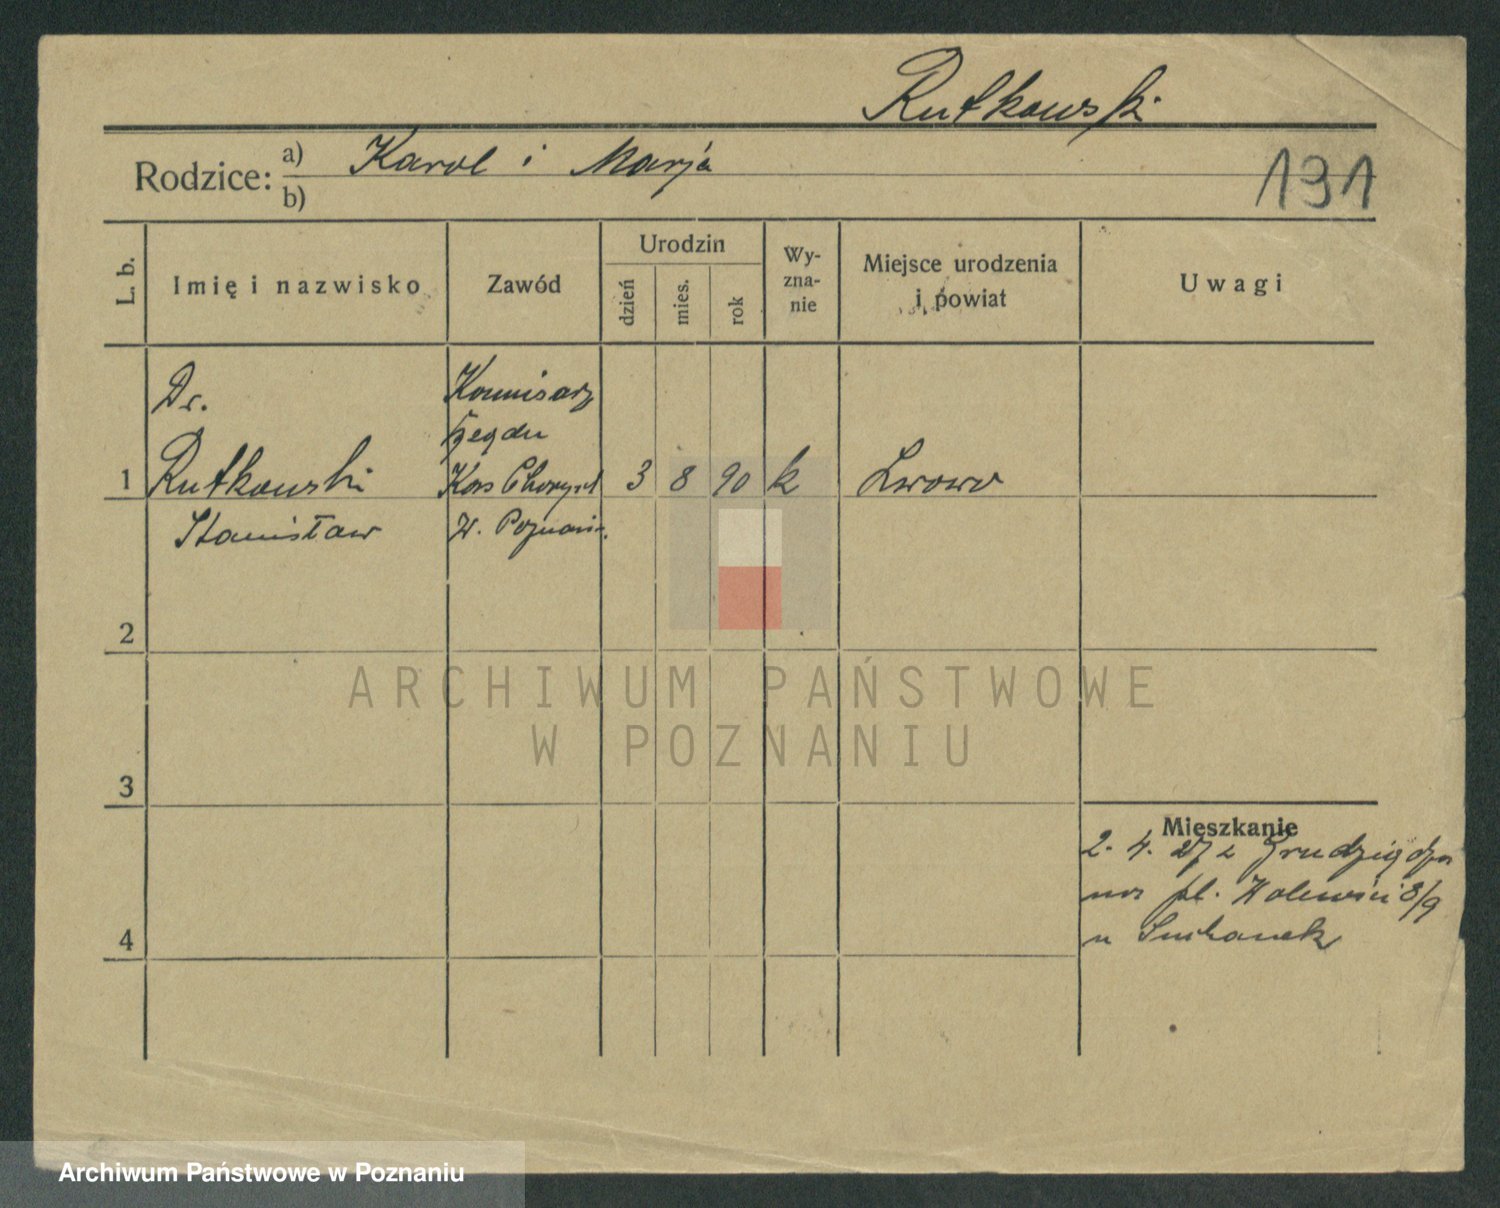 Rutkowski
Rodzice: a) Karol i Marja
b)
191
L. b.
Imię i nazwisko
Zawód
Urodzin
dzień
mies.
rok
Wy-
zna-
nie
Miejsce urodzenia
i powiat
Uwagi
Dr.
Komisarz
1 Rutkowski
Kas Choryd
3 8 90 k Lwowo
Stanisław
W. Poznani.
2
3
4
Mieszkanie
2. 4. 27 z Grudziądza
na pl. Wolności 8/9
u
ARCHIWUM PAŃSTWOWE
W POZNANIU
Archiwum Państwowe w Poznaniu